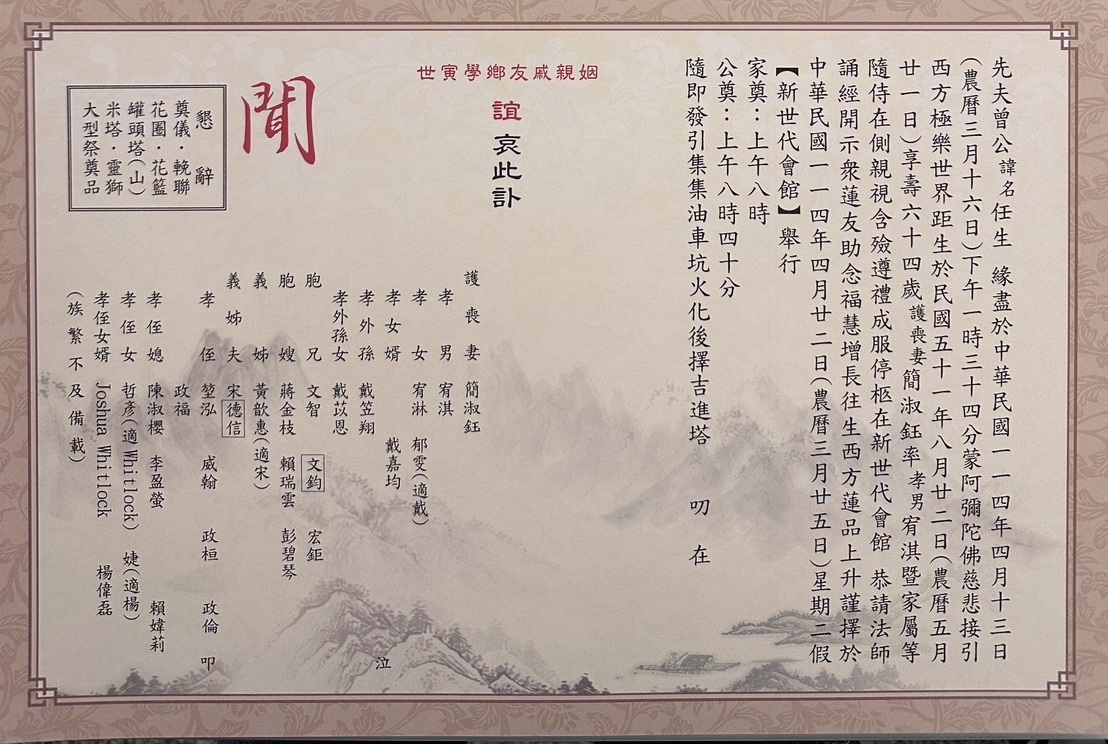 先夫曾公諱名任生　緣盡於中華民國一一四年四月十三日
(農曆三月十六日)下午一時三十四分蒙阿彌陀佛慈悲接引
西方極樂世界距生於民國五十一年八月廿二日(農曆五月
廿一日)享壽六十四歲護喪妻簡淑鈺率孝男宥淇暨家屬等
隨侍在側親視含殮遵禮成服停柩在新世代會館　恭請法師
誦經開示眾蓮友助念福慧增長往生西方蓮品上升謹擇於
中華民國一一四年四月廿二日(農曆三月廿五日)星期二假
【新世代會館】舉行
家奠：上午八時
公奠：上午八時四十分
隨即發引集集油車坑火化後擇吉進塔　叨　在
姻親戚友鄉學寅世
誼哀此訃
聞
護喪妻　簡淑鈺
孝男　宥淇
孝女　宥淋　郁雯(適戴)
孝女婿　戴嘉均
孝外孫　戴笠翔
孝外孫女　戴苡恩
胞兄　文智　文鈞　宏鉅
胞嫂　蔣金枝　賴瑞雲　彭碧琴
義姊　黃歆惠(適宋)
義姊夫　宋德信
孝侄　堃泓　威翰　政桓　政倫
政福
孝侄媳　陳淑櫻　李盈螢　賴媁莉
孝侄女　哲彥(適Whitlock)　婕(適楊)
孝侄女婿　Joshua Whitlock　楊偉磊
(族繁不及備載)
泣
叩
懇辭
奠儀・輓聯
花圈・花籃
罐頭塔(山)
米塔・靈獅
大型祭奠品